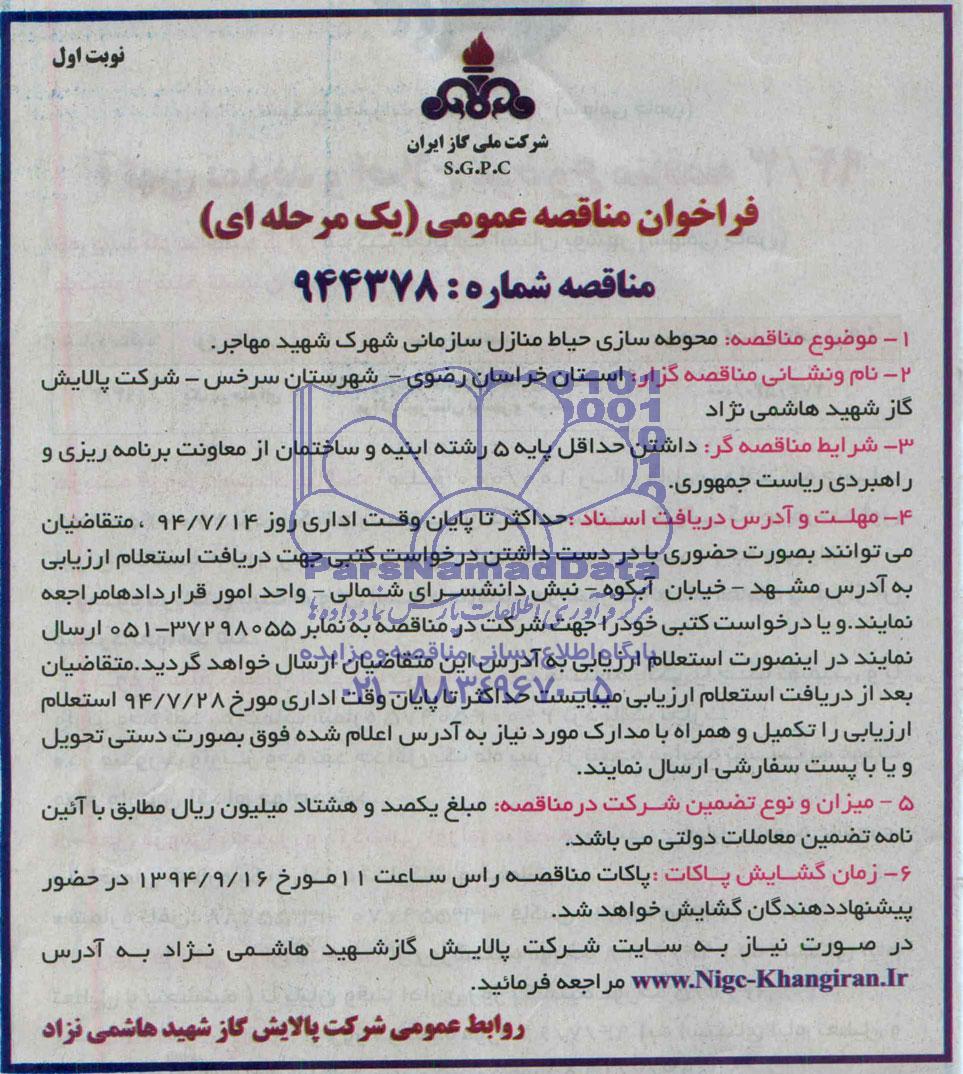 نوبت اول
شرکت ملی گاز ایران
S.G.P.C
فراخوان مناقصه عمومی (یک مرحله ای)
مناقصه شماره : ۹۴۴۳۷۸
۱- موضوع مناقصه: محوطه سازی حیاط منازل سازمانی شهرک شهید مهاجر.
۲- نام ونشانی مناقصه گزار: استان خراسان رضوی - شهرستان سرخس - شرکت پالایش
گاز شهید هاشمی نژاد
۳- شرایط مناقصه گر: داشتن حداقل پایه ۵ رشته ابنیه و ساختمان از معاونت برنامه ریزی و
راهبردی ریاست جمهوری.
۴- مهلت و آدرس دریافت اسناد :حداکثر تا پایان وقت اداری روز ۹۴/۷/۱۴ .متقاضیان
می توانند بصورت حضوری با در دست داشتن درخواست کتبی جهت دریافت استعلام ارزیابی
به آدرس مشهد - خیابان آبکوه - نبش دانشسرای شمالی - واحد امور قراردادهامراجعه
نمایند.و یا درخواست کتبی خودرا جهت شرکت در مناقصه به نمابر ۳۷۲۹۸۰۵۵-۰۵۱ ارسال
نمایند در اینصورت استعلام ارزیابی به آدرس این متقاضیان ارسال خواهد گردید.متقاضیان
بعد از دریافت استعلام ارزیابی میبایست حداکثر تا پایان وقت اداری مورخ ۹۴/۷/۲۸ استعلام
ارزیابی را تکمیل و همراه با مدارک مورد نیاز به آدرس اعلام شده فوق بصورت دستی تحویل
و یا با پست سفارشی ارسال نمایند.
۵ - میزان و نوع تضمین شرکت درمناقصه: مبلغ یکصد و هشتاد میلیون ریال مطابق با آئین
نامه تضمین معاملات دولتی می باشد.
۶- زمان گشایش پاکات :پاکات مناقصه راس ساعت ۱۱مورخ ۱۳۹۴/۹/۱۶ در حضور
پیشنهاددهندگان گشایش خواهد شد.
در صورت نیاز به سایت شرکت پالایش گازشهید هاشمی نژاد به آدرس
www.Nigc-Khangiran.Ir مراجعه فرمائید.
روابط عمومی شرکت پالایش گاز شهید هاشمی نژاد
ParsNamadData
مرکز فرآوری اطلاعات پارس نماد داده ها
پایگاه اطلاع رسانی مناقصه و مزایده
۰۲۱-۸۸۳۴۹۶۷۰-۵